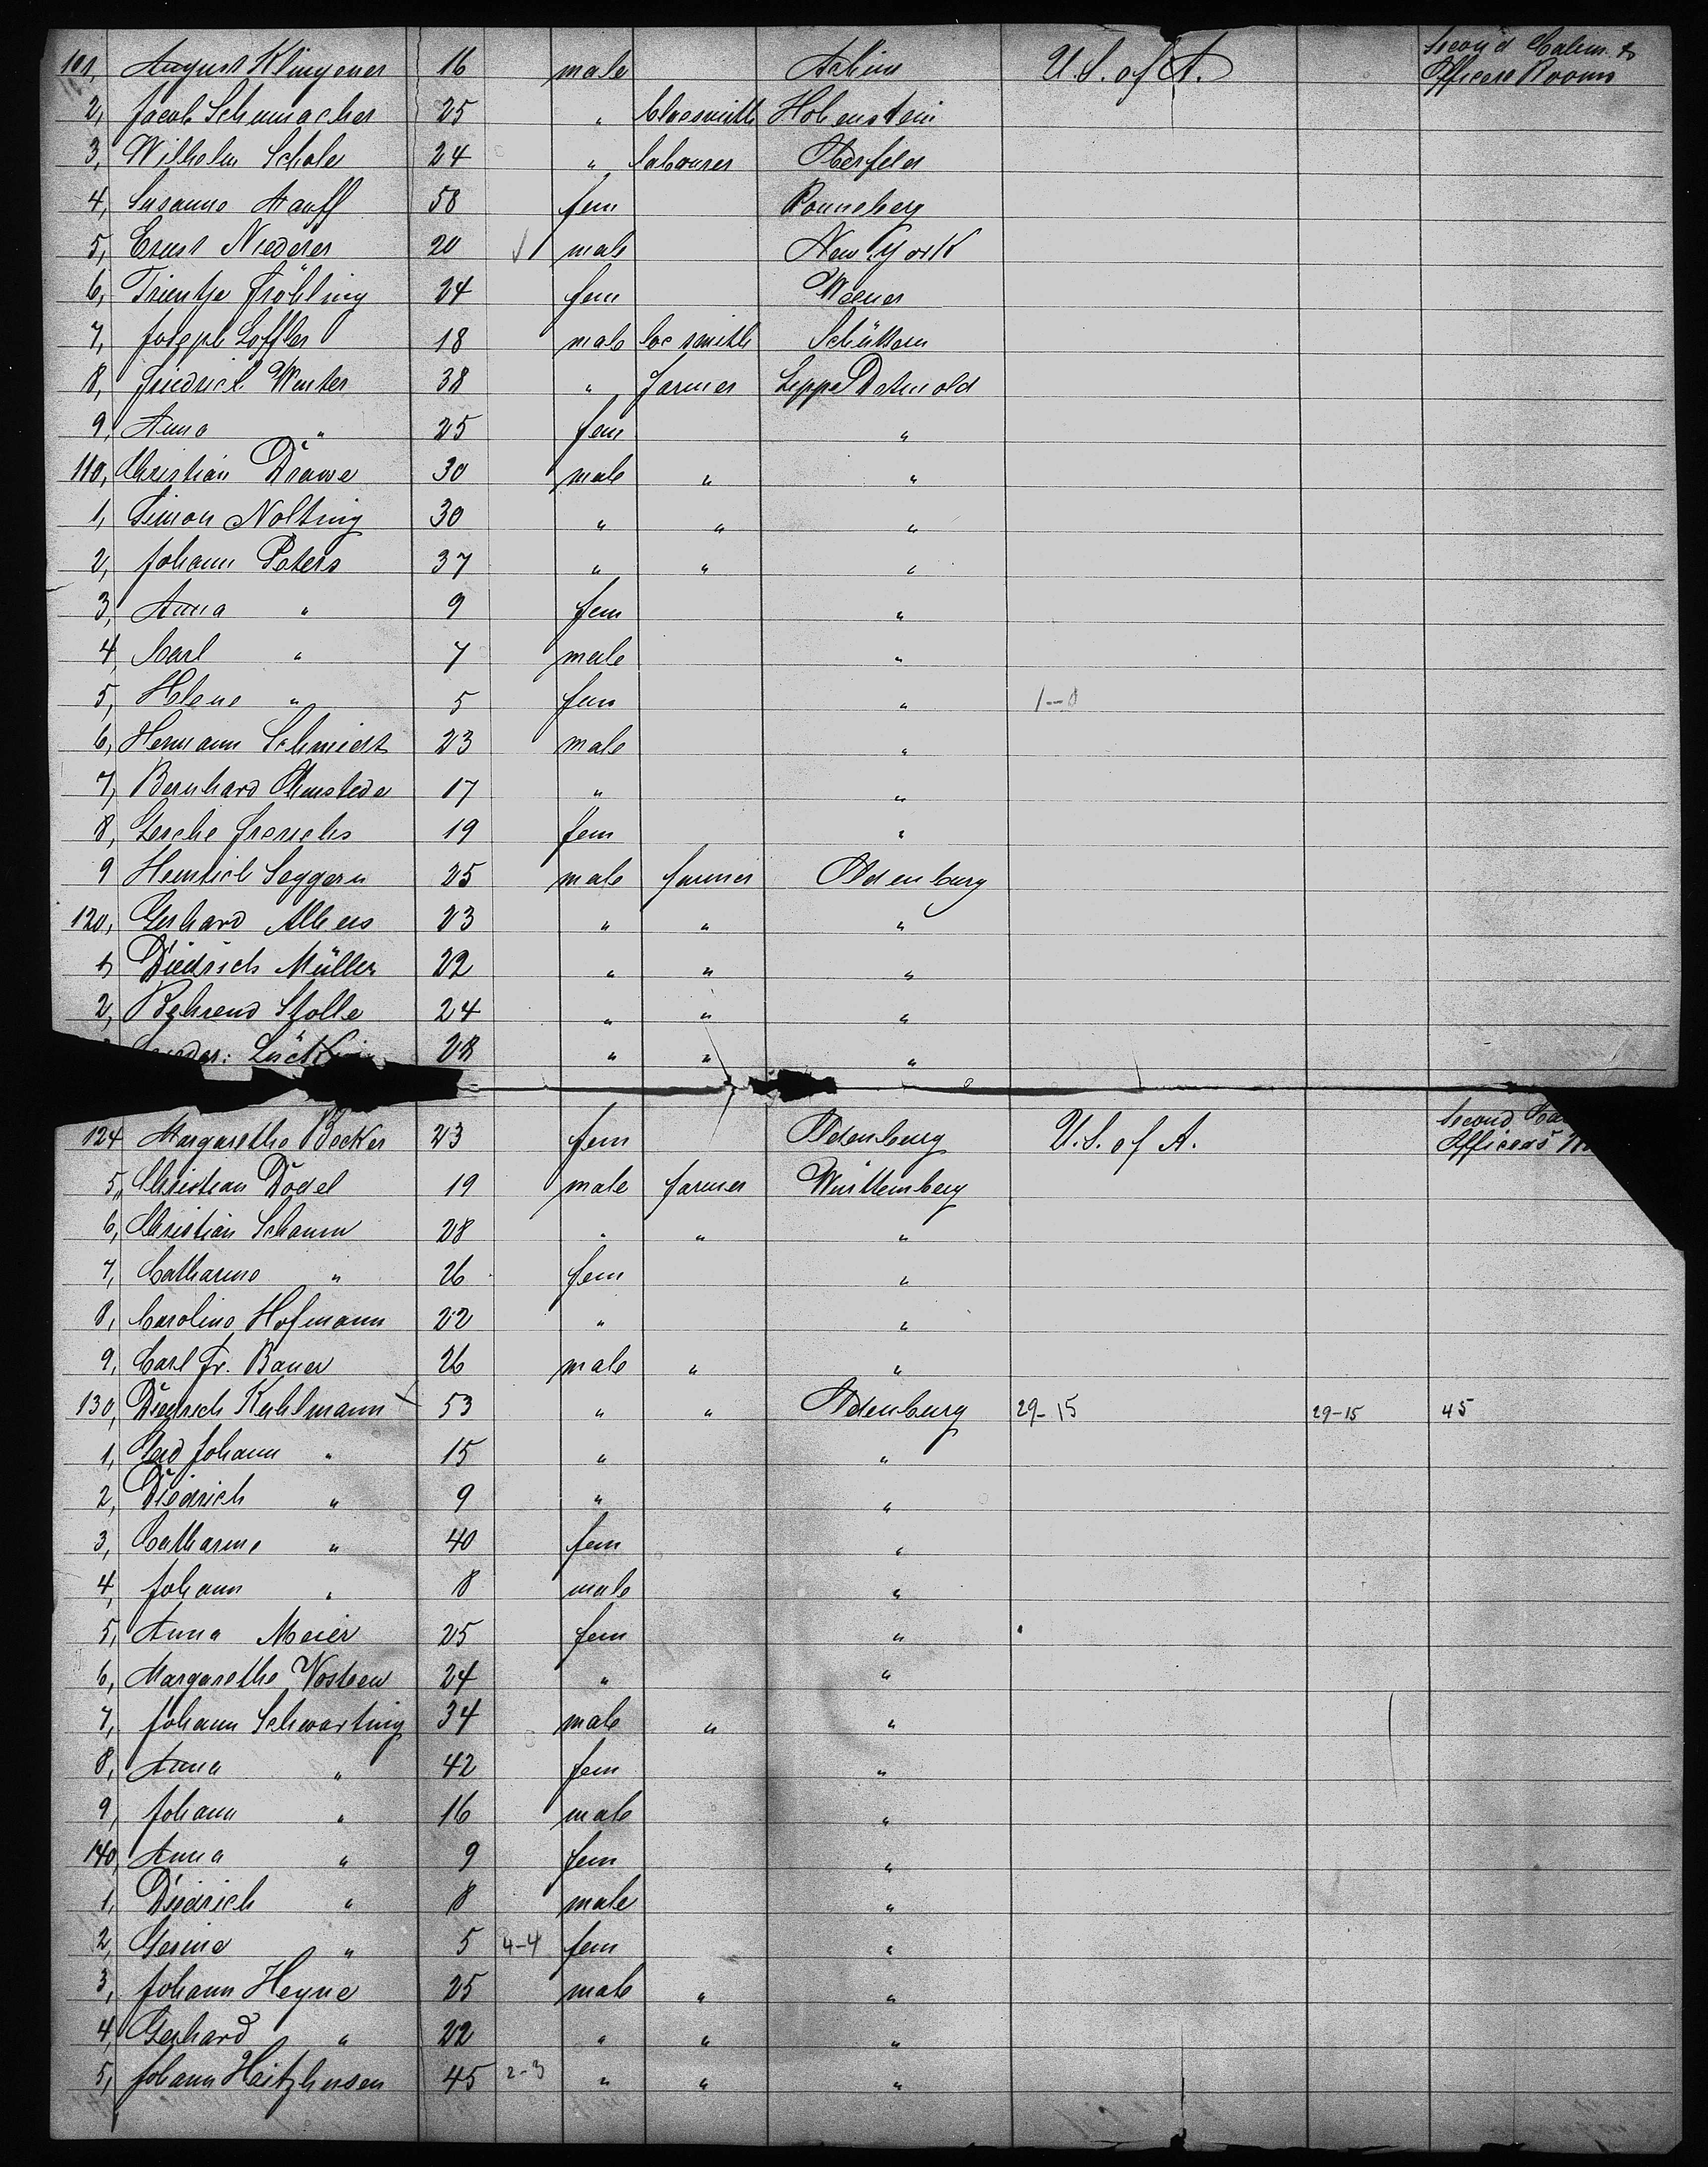 101, August Klingener 16 male Achim U.S. of A. Second Cabin &
Officers Rooms
2, Jacob Schumacher 25 " Hohenstein
3, Wilhelm Schole 24 " labourer
4, Susanne Hauff 58 fem Ronneberg
5, Ernst Niederer 20 male New York
6, Trientje Fröhling 24 fem Weener
7, Joseph Loffler 18 male locsmith Schüttorn
8, Friedrich Winter 38 " farmer Lippe Detmold
9, Anna " 25 fem "
110, Christian Drawe 30 male " "
1, Simon Nolting 30 " " "
2, Johann Peters 37 " " "
3, Anna " 9 fem "
4, Carl " 7 male "
5, Helene " 5 fem "
6, Hermann Schmidt 23 male "
7, Bernhard Ohmstede 17 " "
8, Gesche Frerichs 19 fem "
9 Heinrich Seggern 25 male farmer Oldenburg
120, Gerhard Albers 23 " " "
1, Diedrich Müller 22 " " "
2, Behrend Stolle 24 " " "
28 " " "
124 Margarethe Becker 23 fem Oldenburg U.S. of A. Second
Officers
5, Christian Dödel 19 male farmer Württemberg
6, Christian Schaum 28 " " "
7, Catharine " 26 fem "
8, Caroline Hofmann 22 " "
9, Carl Fr. Bauer 26 male " "
130, Diedrich Kuhlmann 53 " " Oldenburg 29-15 29-15 45
1, Gerd Johann " 15 " "
2, Diedrich " 9 " "
3, Catharine " 40 fem "
4, Johann " 8 male "
5, Anna Meier 25 fem "
6, Margarethe Vosteen 24 " "
7, Johann Schwarting 34 male " "
8, Anna " 42 fem "
9, Johann " 16 male "
140, Anna " 9 fem "
1, Diedrich " 8 male "
2, Gesine " 5 4-4 fem "
3, Johann Heyne 25 male " "
4, Gerhard " 22 " " "
5, Johann Heitzhusen 45 2-3 " " "